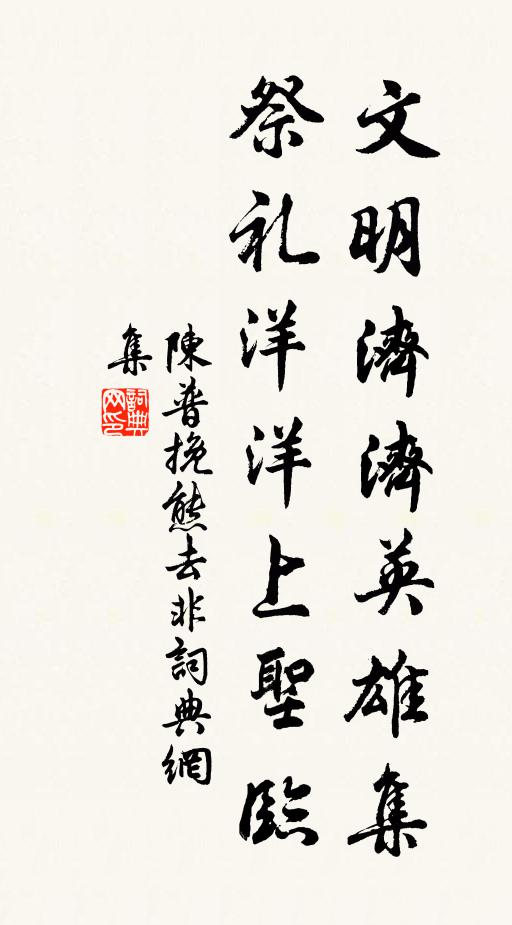 文明濟濟英雄集
祭礼洋洋上聖臨
陳普挽熊去非詞典網
集
詞典
网印